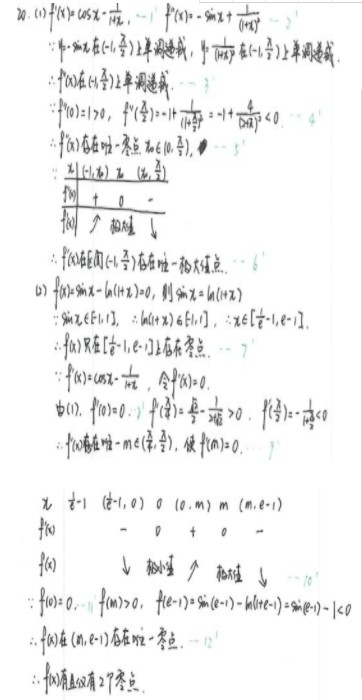 20. (1) f'(x)=cosx-1/(1+x), --1' f''(x)=-sinx+1/(1+x)² --2'
∵ y=-sinx在(-1,π/2)上单调递减, y=1/(1+x)²在(-1,π/2)上单调递减,
∴ f''(x)在(-1,π/2)上单调递减. --3'
∵ f''(0)=1>0, f''(π/2)=-1+1/(1+π/2)²=-1+4/(2+π)²<0. --4'
∴ f''(x)存在唯一零点x₀∈(0,π/2), --5'
∵
x (-1,x₀) x₀ (x₀,π/2)
f''(x) + 0 -
f'(x) ↗ 极大值 ↓
∴ f'(x)在区间(-1,π/2)存在唯一极大值点. --6'
(2) f(x)=sinx-ln(1+x)=0, 则sinx=ln(1+x)
∵ sinx∈[-1,1], ∴ ln(1+x)∈[-1,1], ∴ x∈[1/e-1,e-1].
∴ f(x)只在[1/e-1,e-1]上存在零点. --7'
∵ f'(x)=cosx-1/(1+x), 令f'(x)=0.
由(1), f'(0)=0
∴ f'(x)存在唯一m∈(π/4,π/2), 使f'(m)=0. --9'
x 1/e-1 (1/e-1,0) 0 (0,m) m (m,e-1)
f'(x) - 0 + 0 -
f(x) ↓ 极小值 ↗ 极大值 ↓ --10'
∵ f(0)=0, --11' f(m)>0, f(e-1)=sin(e-1)-ln(1+e-1)=sin(e-1)-1<0
∴ f(x)在(m,e-1)存在唯一零点. --12'
∴ f(x)有且仅有2个零点.